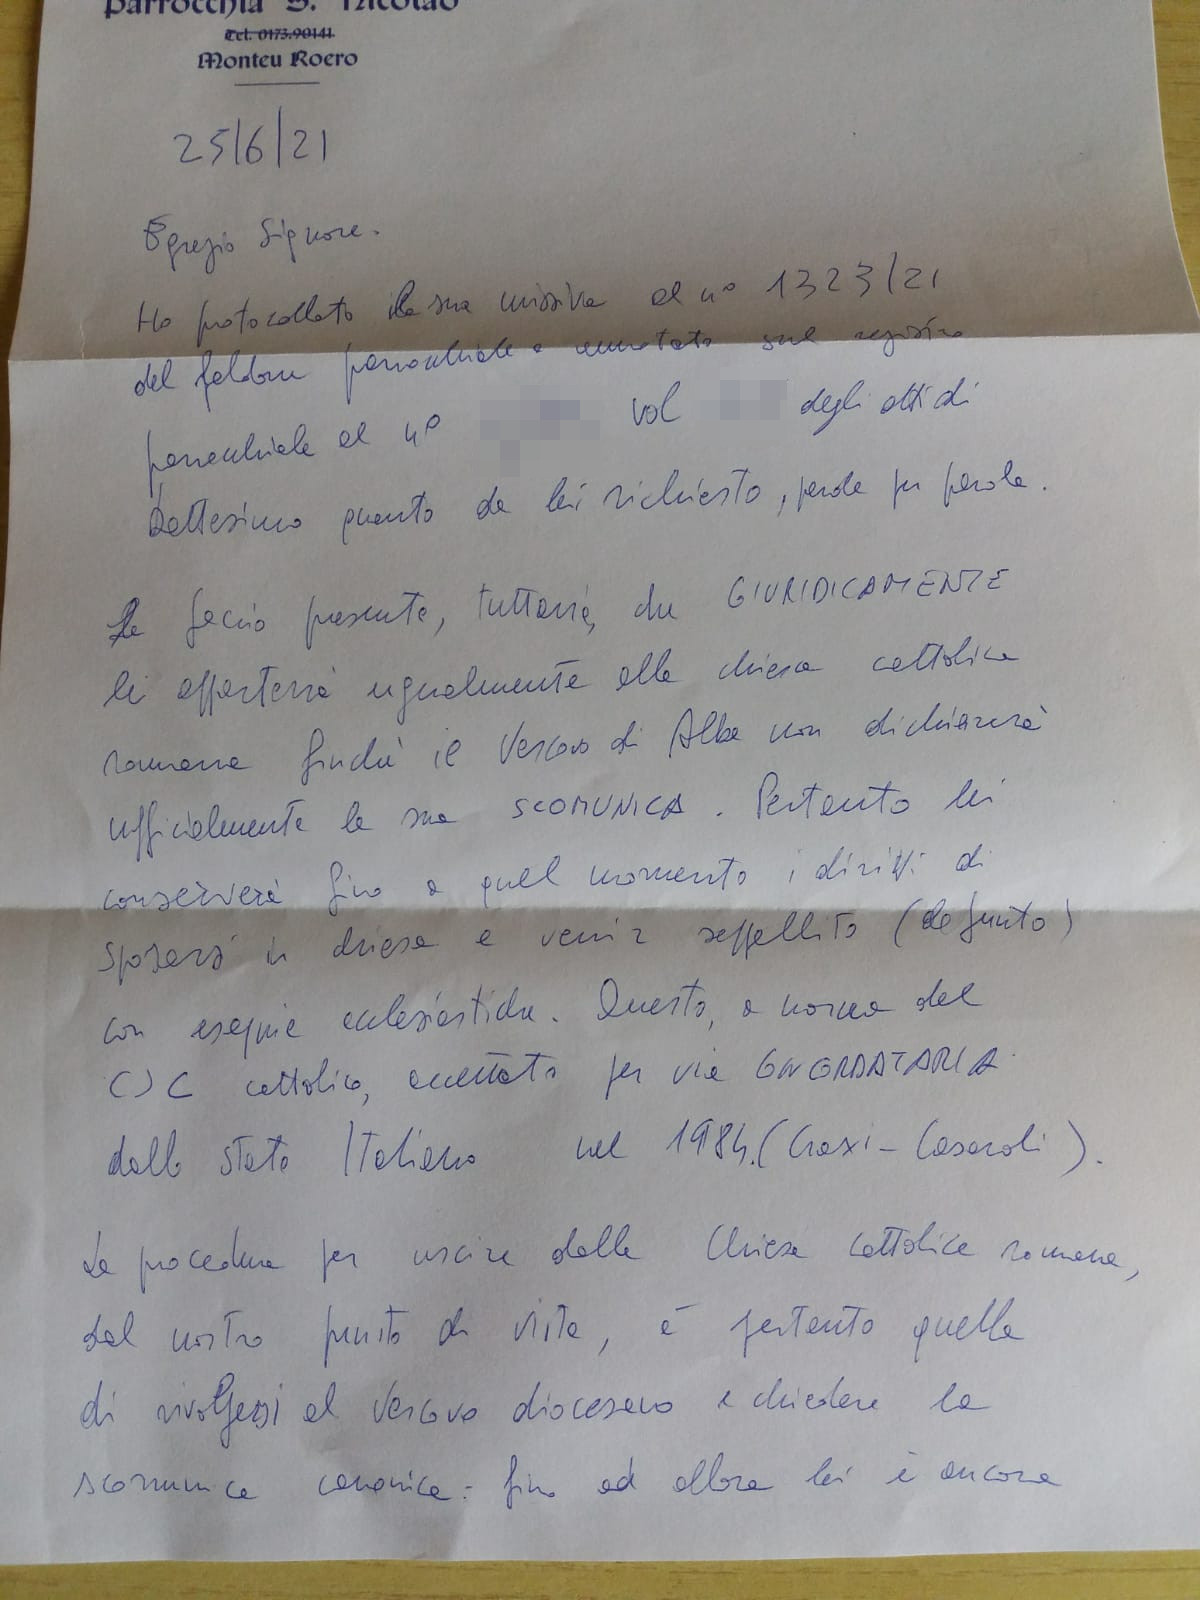 Parrocchia S. Nicolao
Tel. 0173.90141
Monteu Roero
25/6/21
Egregio Signore.
Ho protocollato la sua missiva al n° 1323/21
del faldone parrocchiale e annotato sul registro
parrocchiale al n° vol degli atti di
Battesimo quanto da lei richiesto, parola per parola.
Le faccio presente, tuttavia, che GIURIDICAMENTE
lei apparterrà ugualmente alla chiesa cattolica
romana finché il Vescovo di Alba non dichiarerà
ufficialmente la sua SCOMUNICA. Pertanto lei
conserverà fino a quel momento i diritti di
sposarsi in chiesa e venir seppellito (defunto)
con esequie ecclesiastiche. Questo, a norma del
CJC cattolico, accettato per via CONCORDATARIA
dallo Stato Italiano nel 1984. (Craxi - Casaroli).
La procedura per uscire dalla Chiesa cattolica romana,
dal nostro punto di vista, è pertanto quella
di rivolgersi al Vescovo diocesano e chiedere la
scomunica canonica: fino ad allora lei è ancora